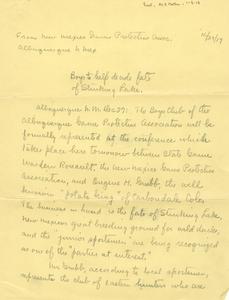 11/27/17
From New Mexico Game Protective Assoc.
Albuquerque N Mex
Boys to help decide fate
of Stinking Lake.
Albuquerque N.M. The Boys Club of the
Albuquerque Game Protective Association will be
formally represented at the conference which
take place here tomorrow between State Game
Warden Rouault, the New Mexico Game Protective
Association, and Eugene H. Grubb, the well
known "potato king" of Carbondale Colo.
The business in hand is the fate of Stinking Lake,
New Mexicos great breeding ground for wild ducks,
and the "junior sportsmen" are being recognized
as one of the "parties at interest".
Mr Grubb, according to local sportsmen,
represents the club of eastern hunters who are